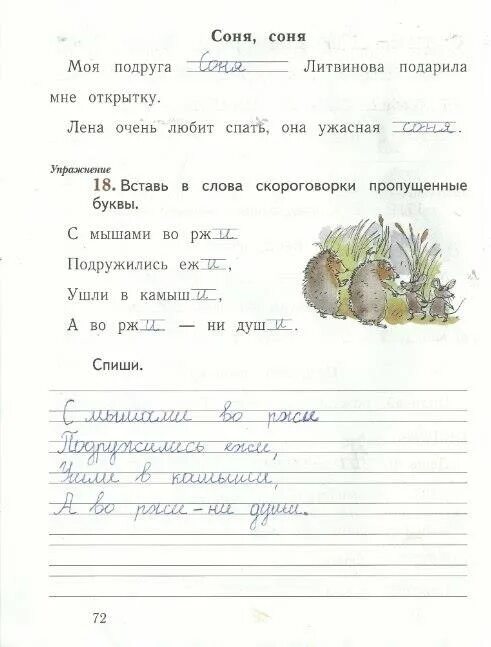 Соня, соня
Моя подруга Соня Литвинова подарила
мне открытку.
Лена очень любит спать, она ужасная соня.
Упражнение
18. Вставь в слова скороговорки пропущенные
буквы.
С мышами во ржи
Подружились ежи,
Ушли в камыши,
А во ржи — ни души.
Спиши.
С мышами во ржи
Подружились ежи,
Ушли в камыши,
А во ржи – ни души.
72